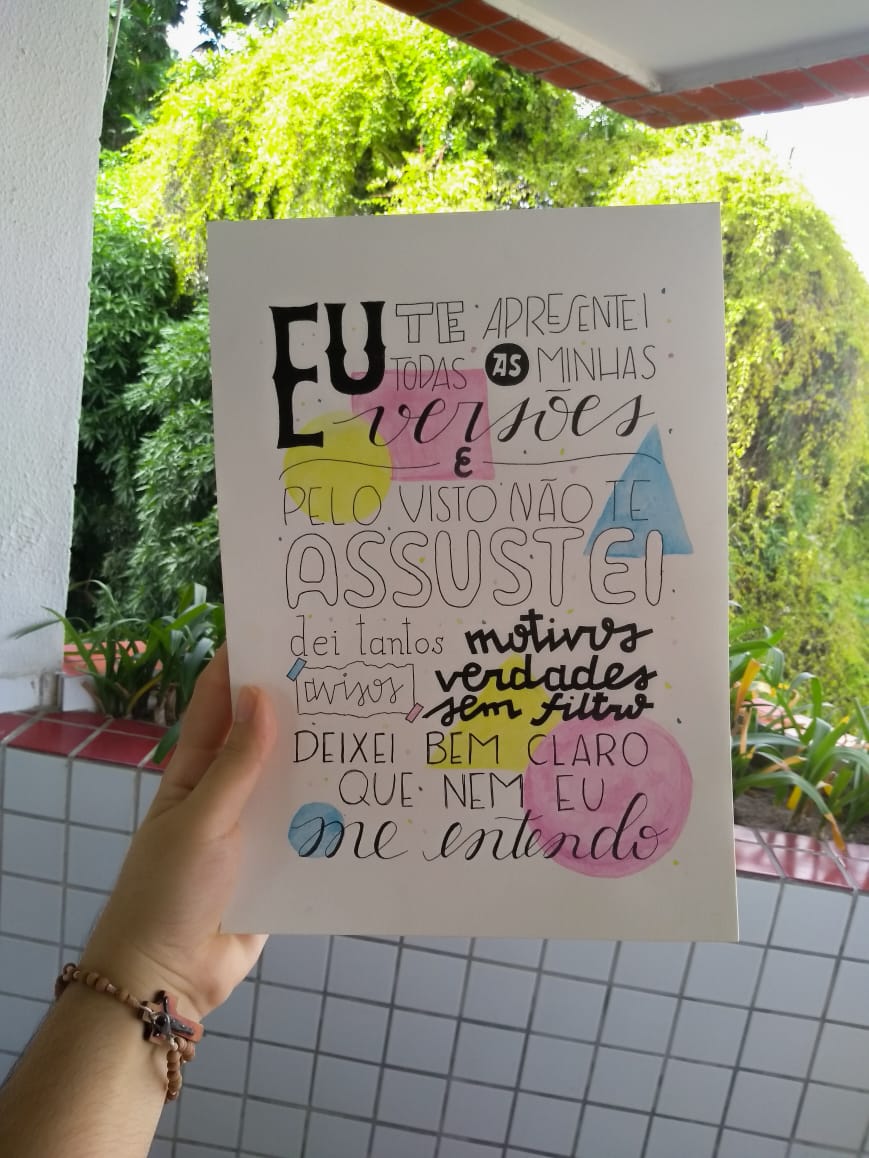 EU TE APRESENTEI
TODAS AS MINHAS
versões
E
PELO VISTO NÃO TE
ASSUSTEI
dei tantos motivos
avisos verdades
sem filtro
DEIXEI BEM CLARO
QUE NEM EU
me entendo